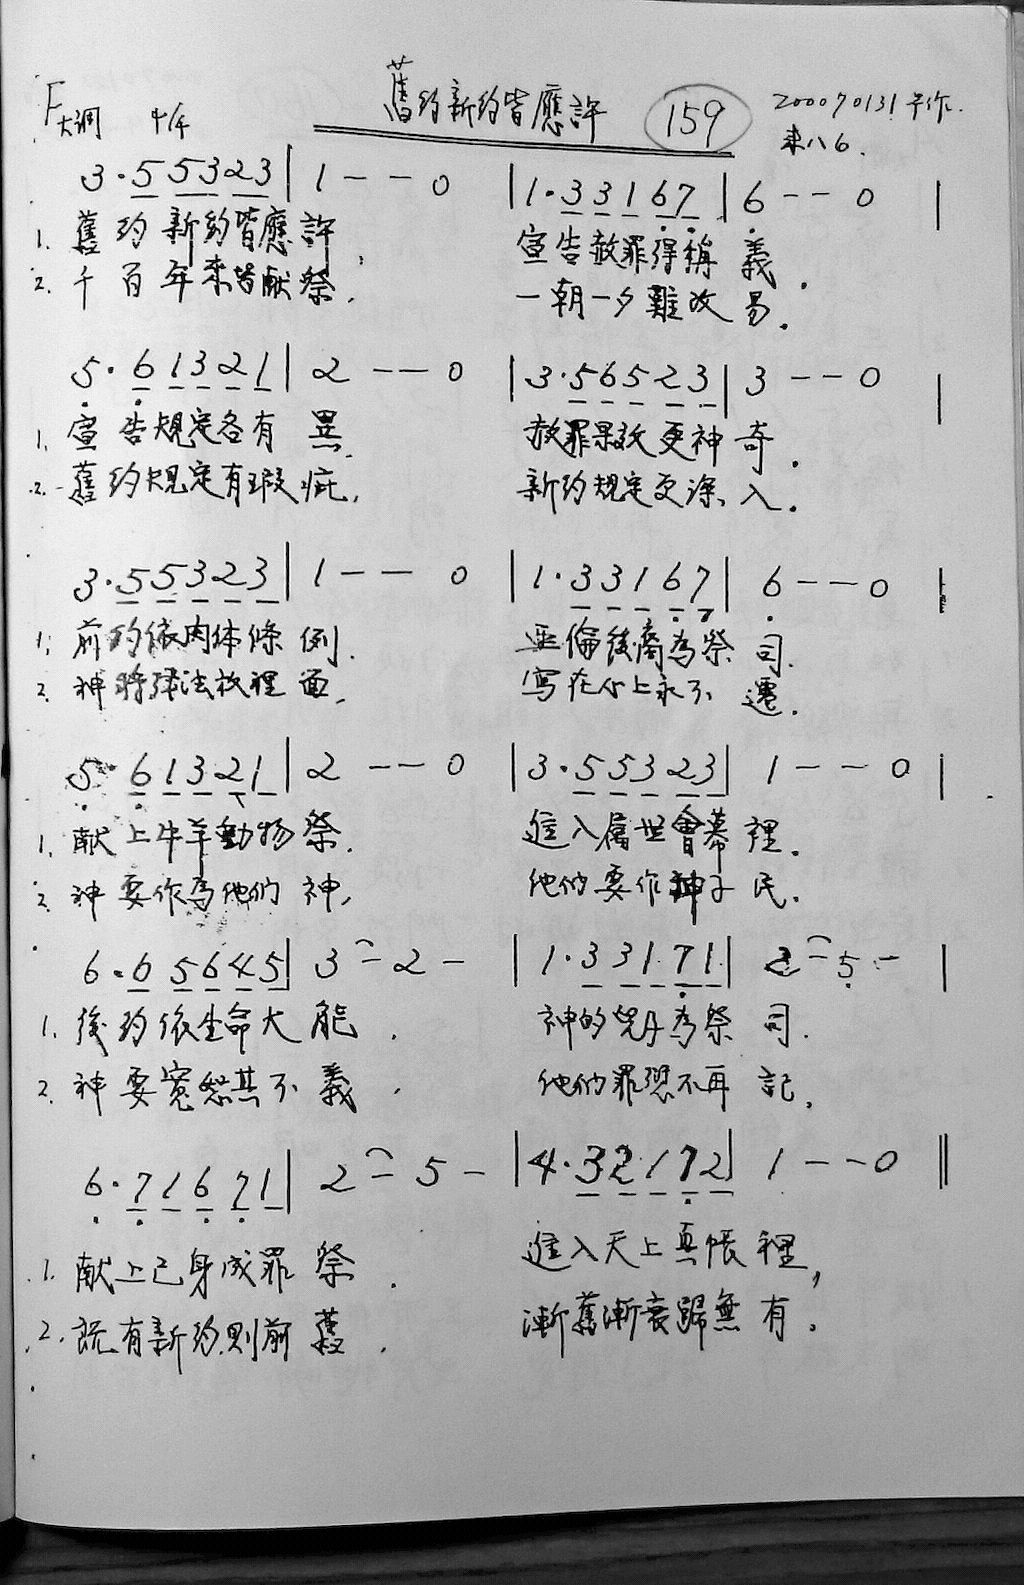 舊約新約皆應許 159
20070131早作.
F大调 4/4 來八6.
3·55323|1--0 |1·33167|6--0|
1. 舊約新約皆應許, 宣告赦罪得稱義.
2. 千百年來皆献祭, 一朝一夕難改易.
5·61321|2--0 |3·56523|3--0|
1. 宣告規定各有異. 赦罪果效更神奇.
2. 舊約規定有瑕疵, 新約規定更深入.
3·55323|1--0 |1·33167|6--0|
1. 前約依肉体條例. 亜倫後裔為祭司.
2. 神將律法放裡面, 寫在心上永不遷.
5·61321|2--0 |3·55323|1--0|
1. 献上牛羊動物祭. 進入屬世會幕裡.
2. 神要作為他們神, 他們要作神子民.
6·65645|3-2- |1·33171|2-5-|
1. 後約依生命大能. 神的兒子為祭司.
2. 神要寬恕其不義, 他們罪愆不再記.
6·71671|2-5- |4·32172|1--0‖
1. 献上己身成罪祭. 進入天上真帳裡,
2. 既有新約則前舊, 漸舊漸衰歸無有.